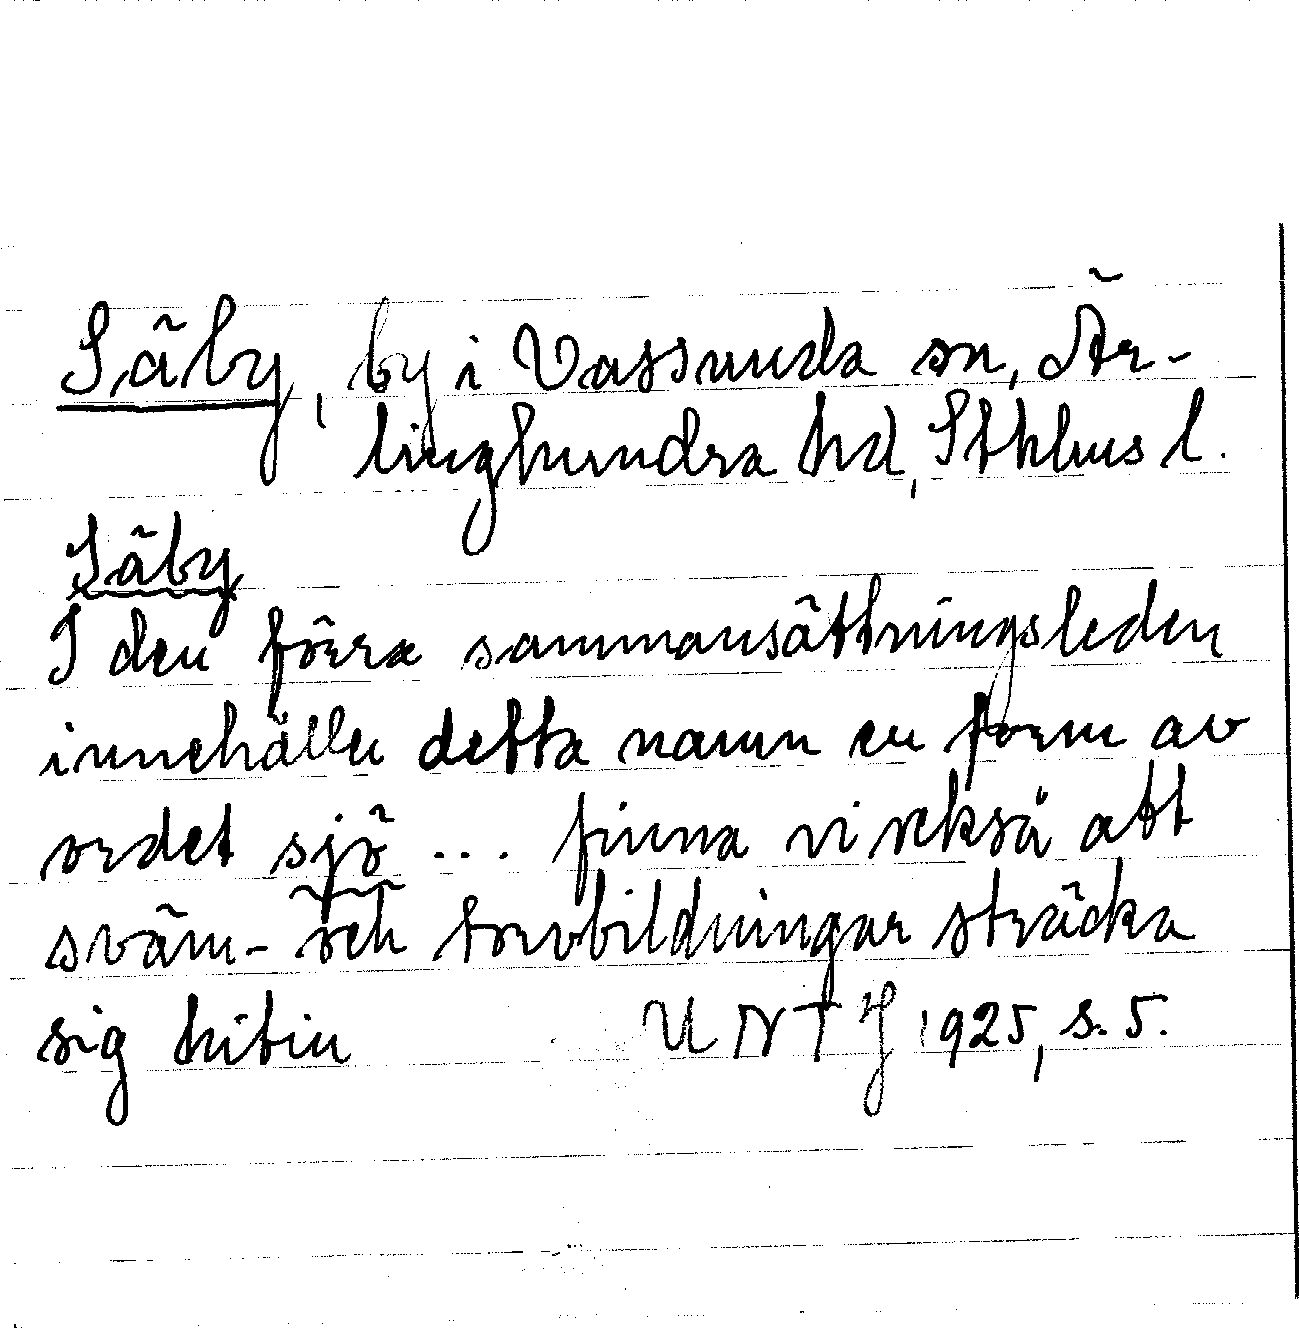 Säby, by i Vassunda sn, Är-
linghundra hd, Sthlms l.
Säby
I den förra sammansättningsleden
innehåller detta namn en form av
ordet sjö ... finna vi också att
sväm- och torvbildningar sträcka
sig hitin UNTJ 1925, s. 5.